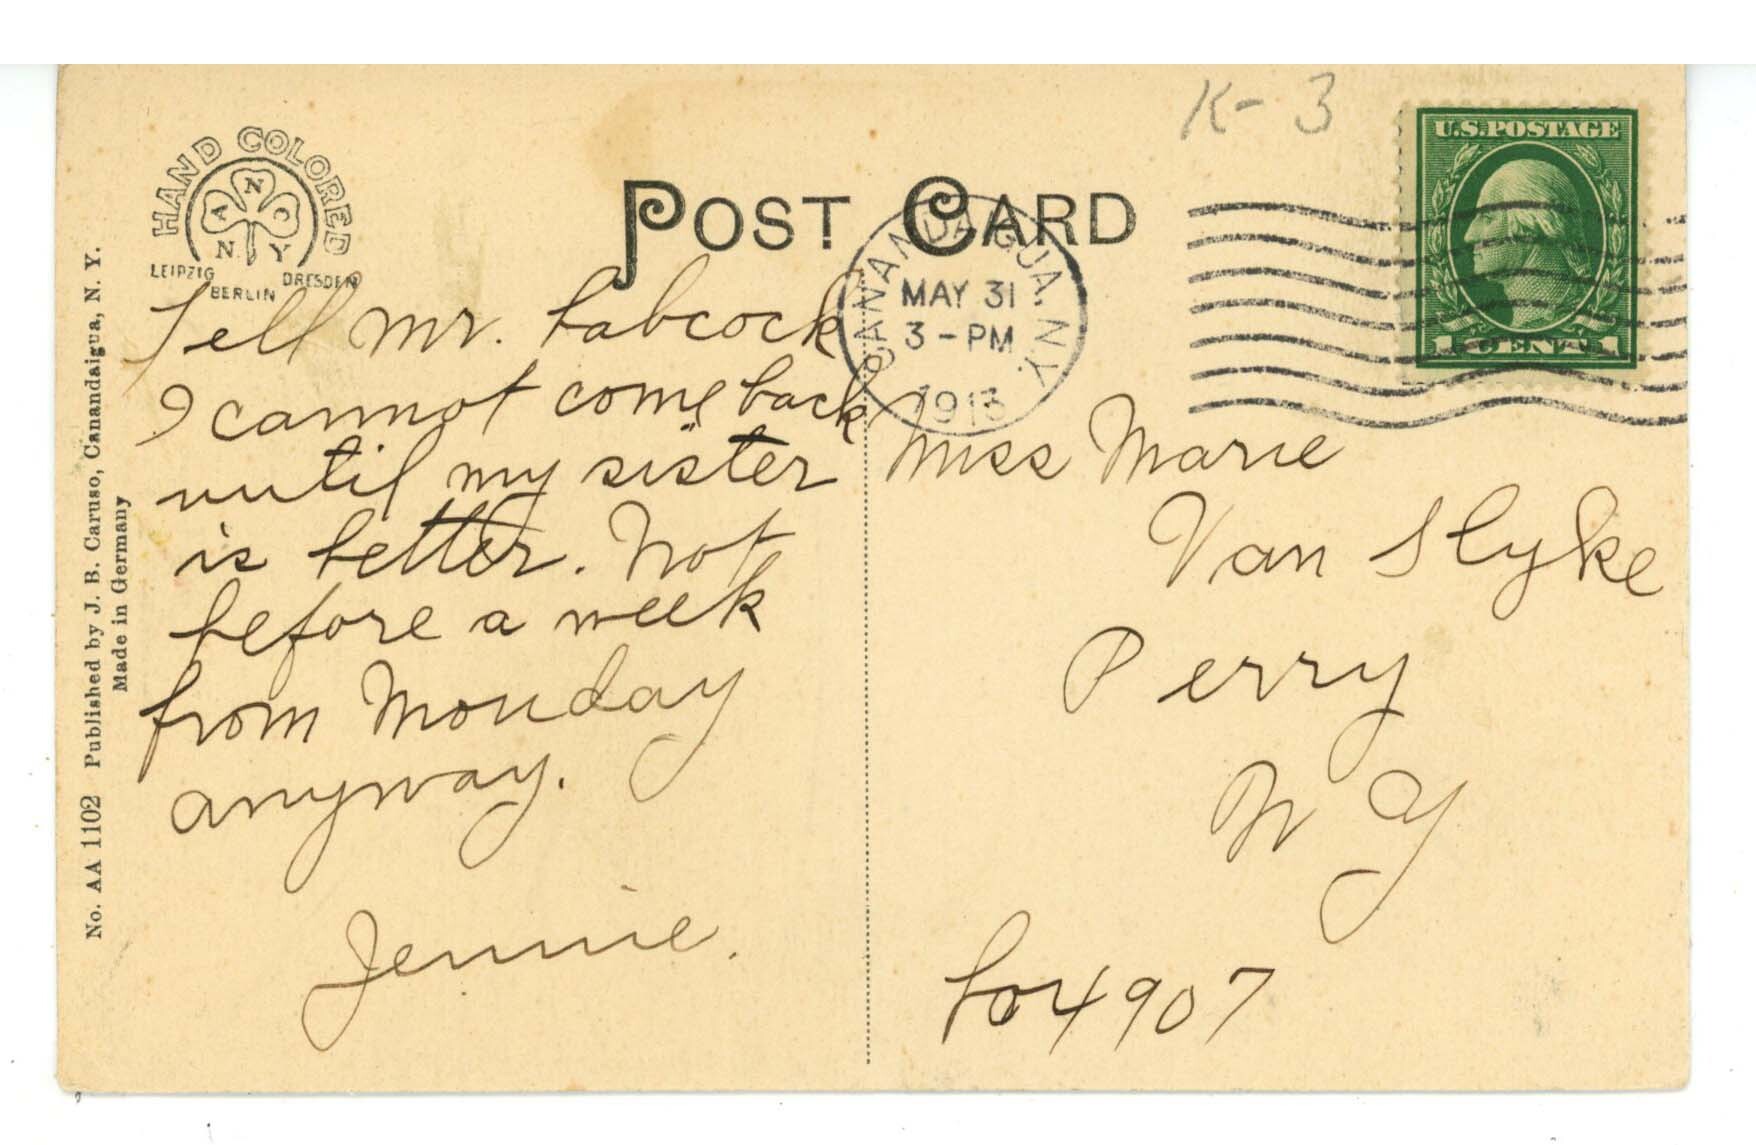 K-3
U.S.POSTAGE
1 CENT 1
HAND COLORED
A N C
N Y
LEIPZIG
BERLIN
DRESDEN
POST CARD
CANANDAIGUA. N.Y.
MAY 31
3-PM
1913
Tell Mr. Babcock
I cannot come back
until my sister
is better. Not
before a week
from Monday
anyway.
Jennie.
Miss Marie
Van Slyke
Perry
N Y
Box 907
No. AA 1102 Published by J. B. Caruso, Canandaigua, N. Y.
Made in Germany